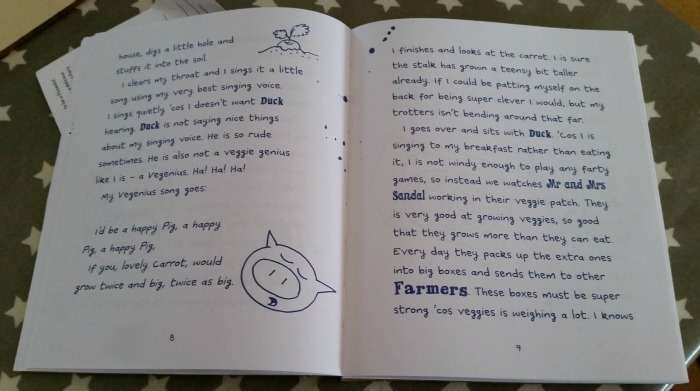 house, digs a little hole and
stuffs it into the soil.
I clears my throat and I sings it a little
song using my very best singing voice.
I sings quietly 'cos I doesn't want Duck
hearing. Duck is not saying nice things
about my singing voice. He is so rude
sometimes. He is also not a veggie genius
like I is – a Vegenius. Ha! Ha! Ha!
My Vegenius song goes:
I'd be a happy Pig, a happy
Pig, a happy Pig,
If you, lovely Carrot, would
grow twice and big, twice as big.
8
I finishes and looks at the carrot. I is sure
the stalk has grown a teensy bit taller
already. If I could be patting myself on the
back for being super clever I would, but my
trotters isn't bending around that far.
I goes over and sits with Duck. 'Cos I is
singing to my breakfast rather than eating
it, I is not windy enough to play any farty
games, so instead we watches Mr and Mrs
Sandal working in their veggie patch. They
is very good at growing veggies, so good
that they grows more than they can eat.
Every day they packs up the extra ones
into big boxes and sends them to other
Farmers. These boxes must be super
strong 'cos veggies is weighing a lot. I knows
9